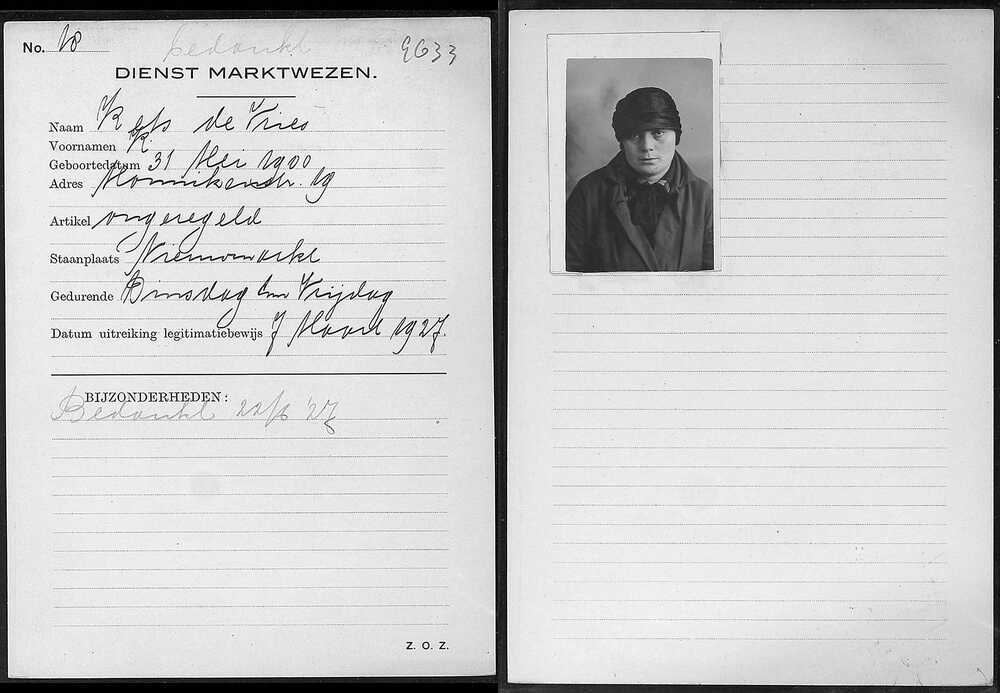 No. 10 bedankt 9633
DIENST MARKTWEZEN.
Naam Kets de Vries
Voornamen K.
Geboortedatum 31 Mei 1900
Adres Monnikenstr. 19
Artikel ongeregeld
Staanplaats Nieuwmarkt
Gedurende Dinsdag t/m Vrijdag
Datum uitreiking legitimatiebewijs 7 Maart 1927.
BIJZONDERHEDEN:
Bedankt 22/6 '27
Z. O. Z.